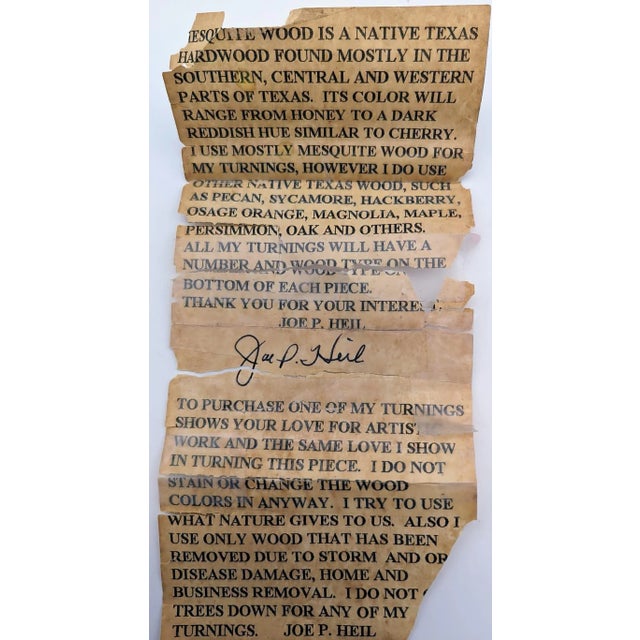 MESQUITE WOOD IS A NATIVE TEXAS
HARDWOOD FOUND MOSTLY IN THE
SOUTHERN, CENTRAL AND WESTERN
PARTS OF TEXAS. ITS COLOR WILL
RANGE FROM HONEY TO A DARK
REDDISH HUE SIMILAR TO CHERRY.
I USE MOSTLY MESQUITE WOOD FOR
MY TURNINGS, HOWEVER I DO USE
OTHER NATIVE TEXAS WOOD, SUCH
AS PECAN, SYCAMORE, HACKBERRY,
OSAGE ORANGE, MAGNOLIA, MAPLE,
PERSIMMON, OAK AND OTHERS.
ALL MY TURNINGS WILL HAVE A
NUMBER AND WOOD TYPE ON THE
BOTTOM OF EACH PIECE.
THANK YOU FOR YOUR INTEREST.
JOE P. HEIL
Joe P. Heil
TO PURCHASE ONE OF MY TURNINGS
SHOWS YOUR LOVE FOR ARTIST
WORK AND THE SAME LOVE I SHOW
IN TURNING THIS PIECE. I DO NOT
STAIN OR CHANGE THE WOOD
COLORS IN ANYWAY. I TRY TO USE
WHAT NATURE GIVES TO US. ALSO I
USE ONLY WOOD THAT HAS BEEN
REMOVED DUE TO STORM AND OR
DISEASE DAMAGE, HOME AND
BUSINESS REMOVAL. I DO NOT
TREES DOWN FOR ANY OF MY
TURNINGS. JOE P. HEIL